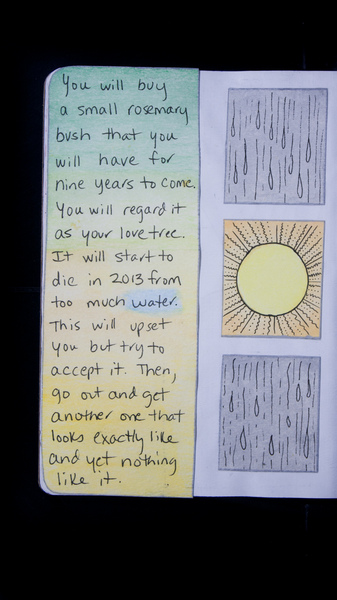 You will buy
a small rosemary
bush that you
will have for
nine years to come.
You will regard it
as your love tree.
It will start to
die in 2013 from
too much water.
This will upset
you but try to
accept it. Then,
go out and get
another one that
looks exactly like
and yet nothing
like it.